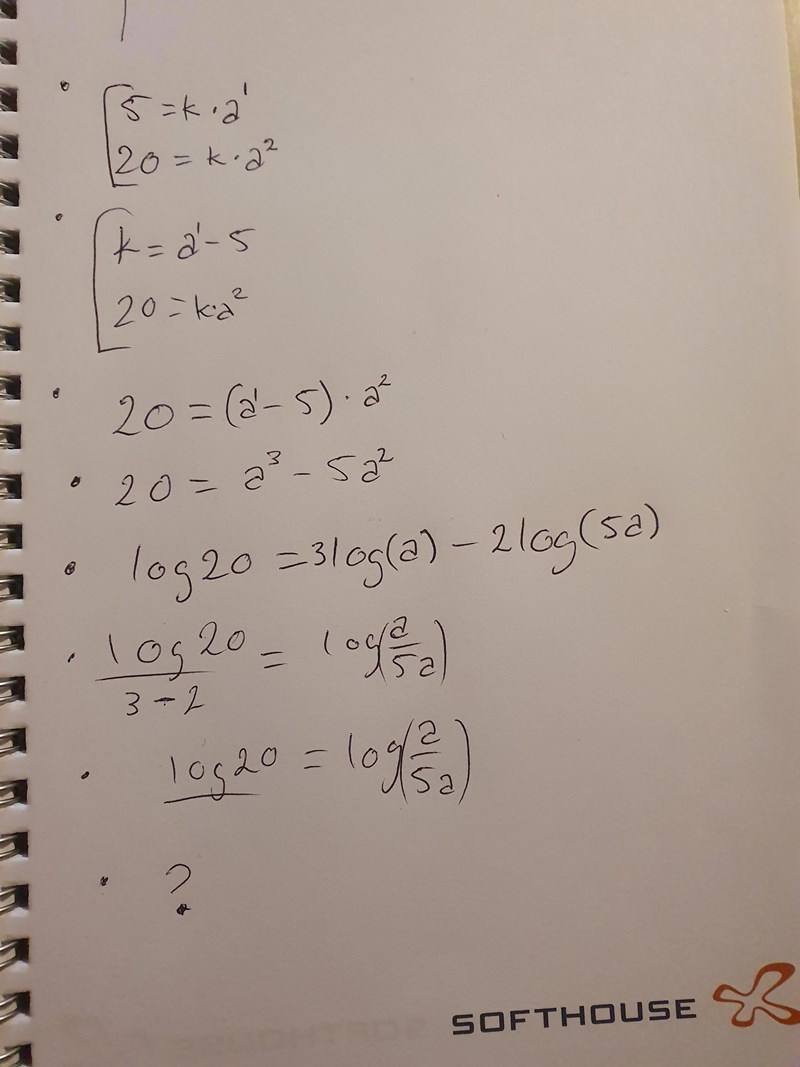 5 = k · a¹
20 = k · a²
k = a¹ - 5
20 = k·a²
20 = (a¹ - 5) · a²
20 = a³ - 5a²
log 20 = 3log(a) - 2log(5a)
log 20 / 3 - 2 = log(a/5a)
log 20 = log(a/5a)
?
SOFTHOUSE